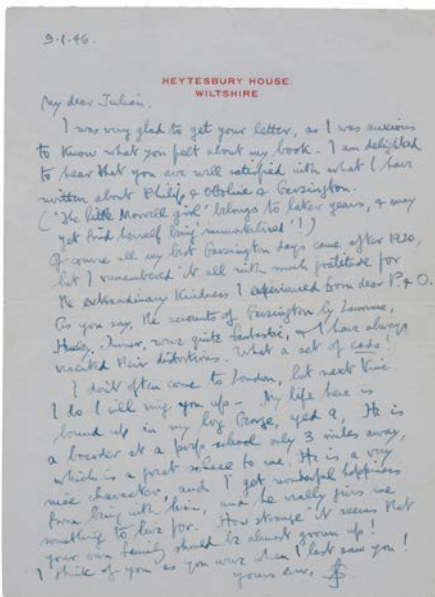 9-1-46.
HEYTESBURY HOUSE
WILTSHIRE
My dear Julian.
I was very glad to get your letter, as I was anxious
to know what you felt about my book. I am delighted
to hear that you are well satisfied with what I have
written about Philip & Ottoline & Garsington.
('The little Morrell girl' belongs to later years, & may
yet find herself being 'immortalised'!)
Of course all my best Garsington days came after 1920,
but I remembered it all with much gratitude for
the extraordinary kindness I experienced from dear P. & O.
As you say, the accounts of Garsington by Lawrence,
Huxley, Turner, were quite fantastic, & I have always
resented their distortions. What a set of cads!
I don't often come to London, but next time
I do I will ring you up – My life here is
bound up in my boy George, aged 9. He is
a boarder at a prep. school only 3 miles away,
which is a great solace to me. He is a very
nice character, and I get wonderful happiness
from being with him, and he really gives me
something to live for. How strange it seems that
your own family should be almost grown up!
I think of you as you were when I last saw you!
yours ever,